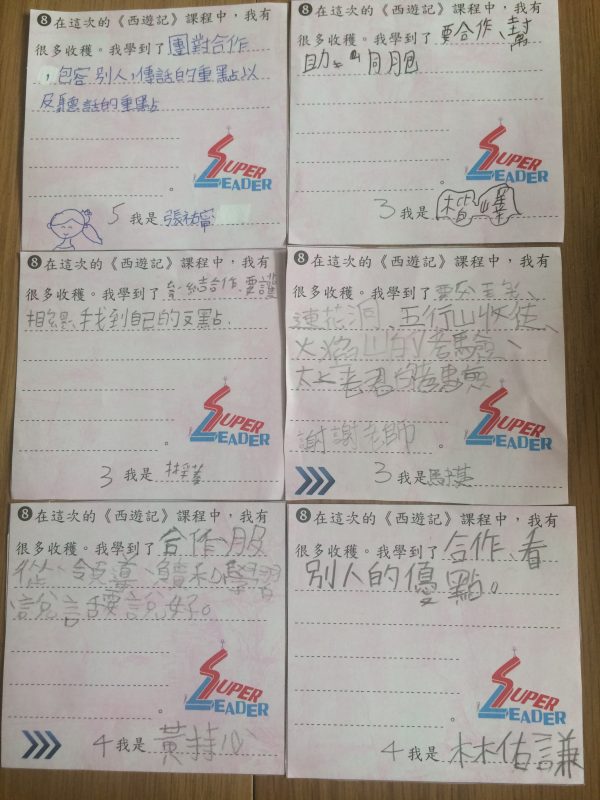 ❽在這次的《西遊記》課程中，我有
很多收穫。我學到了團對合作
，包容別人，傳話的重點以
及聽話的重點
。
SUPER
LEADER
5 我是張祐甯
❽在這次的《西遊記》課程中，我有
很多收穫。我學到了要合作、幫
助
。
SUPER
LEADER
3 我是
❽在這次的《西遊記》課程中，我有
很多收穫。我學到了結合作、要護
相 找到自己的 點．
。
SUPER
LEADER
3 我是林
❽在這次的《西遊記》課程中，我有
很多收穫。我學到了要
蓮花洞、五行山收徒、
火焰山的考驗、
太上老君的考驗
謝謝老師。
SUPER
LEADER
3 我是
❽在這次的《西遊記》課程中，我有
很多收穫。我學到了合作、服
從、領導、負責和學習
說話要說好。
。
SUPER
LEADER
4 我是黃
❽在這次的《西遊記》課程中，我有
很多收穫。我學到了合作、看
別人的優點。
。
SUPER
LEADER
4 我是林佑謙